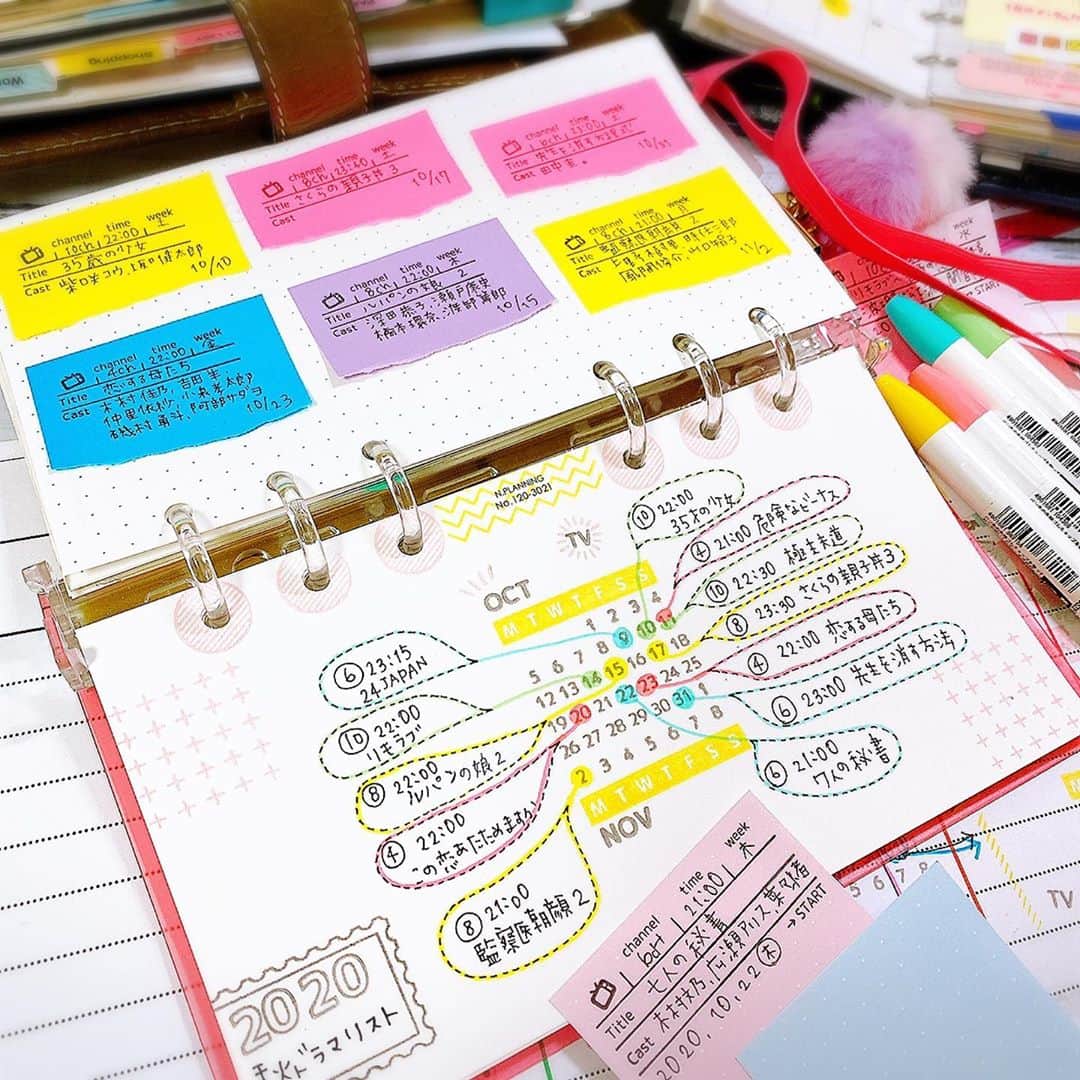 Shopping
channel time week
8ch 23:40 土
Title さくらの親子丼3
Cast
10/17
channel time week
6ch 23:00 土
Title 先生を消す方程式
Cast 田中圭。
10/31
channel time week
10ch 22:00 土
Title 35歳の少女
Cast 柴咲コウ、坂口健太郎
10/10
channel time week
8ch 22:00 木
Title ルパンの娘 2
Cast 深田恭子、瀬戸康史
橋本環奈、渡部篤郎
10/15
channel time week
8ch 21:00 月
Title 監察医朝顔 2
Cast 上野樹里、時任三郎
風間俊介、山口智子
11/2
channel time week
4ch 22:00 金
Title 恋する母たち
Cast 木村佳乃、吉田羊、
仲里依紗、小泉孝太郎
磯村勇斗、阿部サダヲ
10/23
N.PLANNING
No.120-3021
TV
OCT
M T W T F S S
1 2 3 4
5 6 7 8 9 10 11
12 13 14 15 16 17 18
19 20 21 22 23 24 25
26 27 28 29 30 31 1
2 3 4 5 6 7 8
M T W T F S S
NOV
⑩ 22:00
35才の少女
④ 21:00 危険なビーナス
⑩ 22:30 極主夫道
⑧ 23:30 さくらの親子丼3
④ 22:00 恋する母たち
⑥ 23:00 先生を消す方法
⑥ 21:00
7人の秘書
⑥ 23:15
24JAPAN
⑩ 22:00
リモラブ
⑧ 22:00
ルパンの娘2
④ 22:00
この恋あたためますか
⑧ 21:00
監察医朝顔2
2020
秋ドラマリスト
channel time week
6ch 21:00 木
Title 七人の秘書
Cast 木村文乃、広瀬アリス、菜々緒
2020.10.22(木) →START
week
水
→START
TV